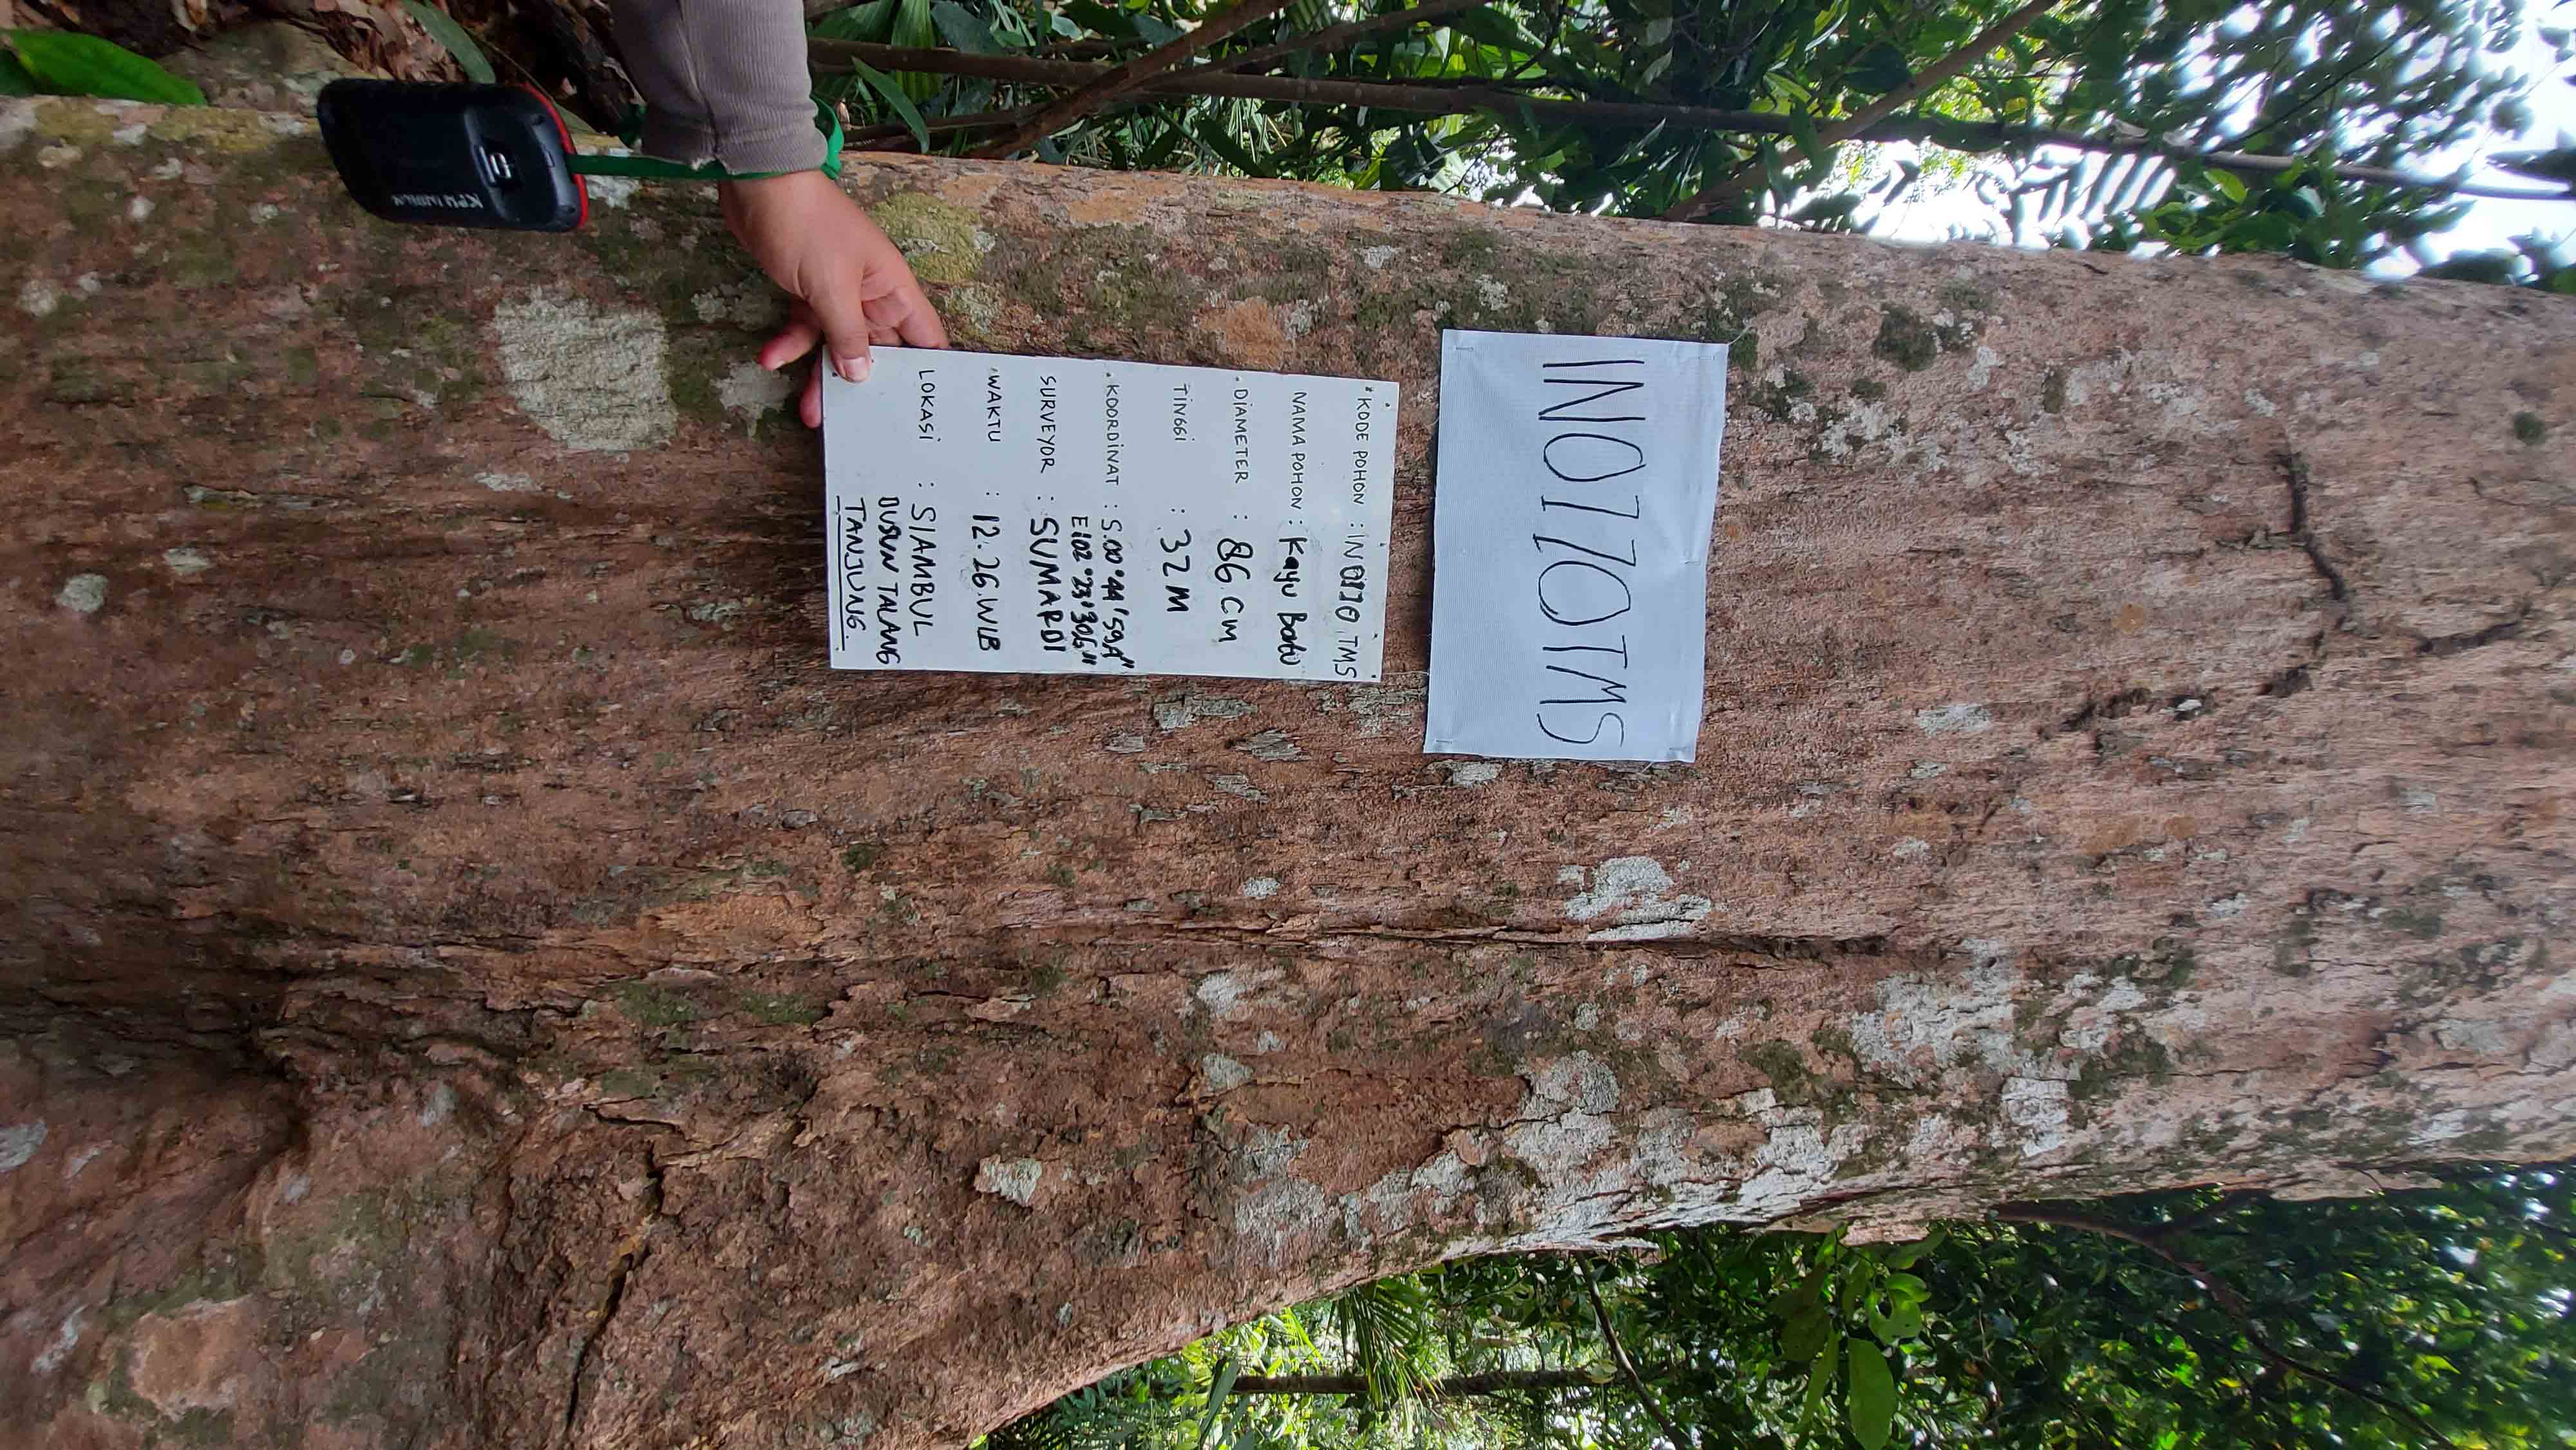 INO170TMS
KODE POHON : INO170.TMS
NAMA POHON : Kayu Batu
DIAMETER : 86.CM
TINGGI : 32 M
KOORDINAT : S.00°44'59,4"
E.102°23'30,6"
SURVEYOR : SUMARDI
WAKTU : 12.26.WIB
LOKASI : SIAMBUL
DUSUN TALANG
TANJUNG.